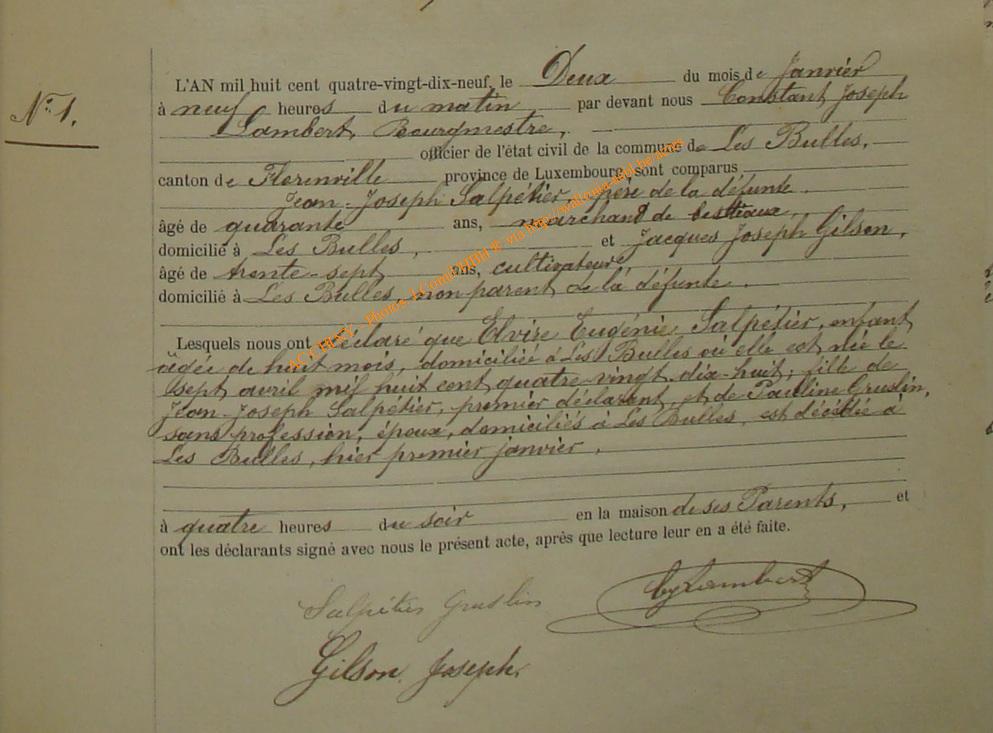 N° 1.
L'AN mil huit cent quatre-vingt-dix-neuf, le Deux du mois de Janvier
à neuf heures du matin, par devant nous Constant Joseph
Lambert, Bourgmestre,
officier de l'état civil de la commune de Les Bulles,
canton de Florenville province de Luxembourg, sont comparus
Jean-Joseph Salpétier, père de la défunte.
âgé de quarante ans, marchand de bestiaux,
domicilié à Les Bulles, et Jacques Joseph Gilson,
âgé de trente-sept ans, cultivateur
domicilié à Les Bulles, non parent de la défunte.
Lesquels nous ont déclaré que Elvire Eugénie Salpétier, enfant
âgée de huit mois, domiciliée à Les Bulles où elle est née le
sept avril mil huit cent quatre-vingt-dix-huit; fille de
Jean-Joseph Salpétier, premier déclarant, et de Pauline Gruslin,
sans profession, époux, domiciliés à Les Bulles, est décédée à
Les Bulles, hier premier janvier,
à quatre heures du soir en la maison de ses Parents, et
ont les déclarants signé avec nous le présent acte, après que lecture leur en a été faite.
Salpétier Gruslin
CJLambert
Gilson Joseph.
via http://wallonia-